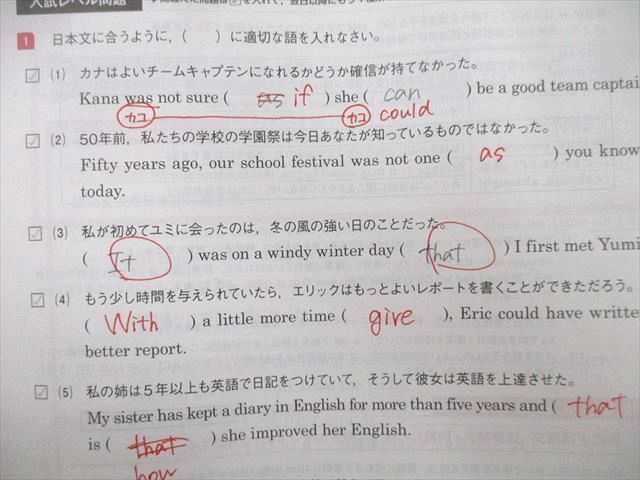 入試レベル問題
1 日本文に合うように，（　）に適切な語を入れなさい。
(1) カナはよいチームキャプテンになれるかどうか確信が持てなかった。
Kana was not sure ( as if ) she ( can ) be a good team captai
カコ カコ could
(2) 50年前，私たちの学校の学園祭は今日あなたが知っているものではなかった。
Fifty years ago, our school festival was not one ( as ) you know
today.
(3) 私が初めてユミに会ったのは，冬の風の強い日のことだった。
( It ) was on a windy winter day ( that ) I first met Yumi
(4) もう少し時間を与えられていたら，エリックはもっとよいレポートを書くことができただろう。
( With ) a little more time ( give ), Eric could have writte
better report.
(5) 私の姉は5年以上も英語で日記をつけていて，そうして彼女は英語を上達させた。
My sister has kept a diary in English for more than five years and ( that
is ( that ) she improved her English.
how